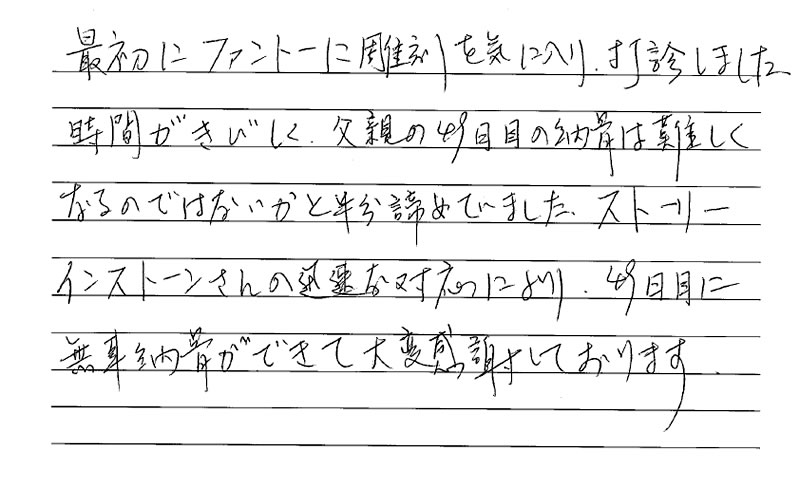 最初にファントーに彫刻を気に入り、打診しました
時間がきびしく、父親の49日目の納骨は難しく
なるのではないかと半分諦めていました、ストーリー
インストーンさんの迅速な対応により、49日目に
無事納骨ができて大変感謝しております.